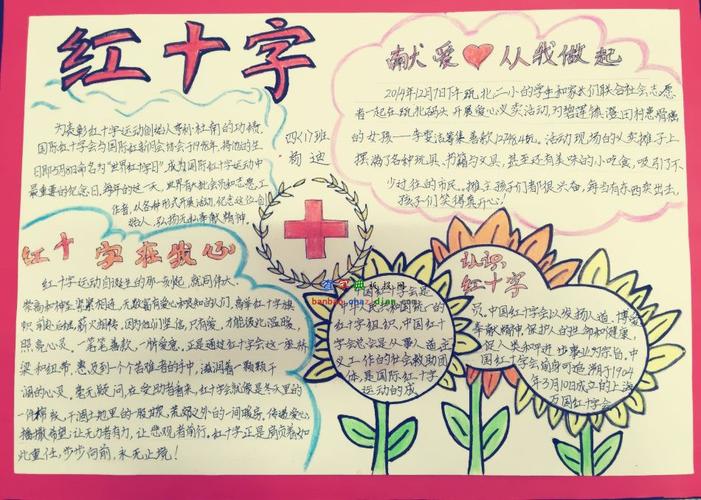 红十字
为表彰红十字运动创始人亨利·杜南的功绩,
国际红十字会与国际红新月会协会于1948年,将他的生
日即5月8日命名为“世界红十字日”,成为国际红十字运动中
最重要的纪念日,每年的这一天,世界各国红会员和志愿工
作者,以各种形式开展活动,纪念这位创
始人,弘扬无私奉献精神。
杨迪
献爱 从我做起
2014年12月7日下午筑北二小的学生和家长们联合社会志愿
者一起在筑北码头开展爱心义卖活动,为碧莲镇
的女孩——李莹洁筹集善款12748.4元。活动现场的义卖摊子上
摆满了各种玩具、书籍与文具,甚至还有美味的小吃食,吸引了不
少过往的市民。摊主孩子们都很兴奋,每当有东西卖出去,
孩子们笑得真开心!
红十字在我心
红十字运动自诞生的那一刻起,就同伟大、
崇高和神圣紧紧相连,无数富有爱心和良知的人们,高举红十字旗
帜,前赴后继,薪火相传,因为他们坚信,只有爱,才能彼此温暖,
照亮心灵。一笔笔善款,一份份爱,正是通过红十字会这一座桥
梁和纽带,惠及到一个个苦难者的手中,滋润着一颗颗干
涸的心灵。毫无疑问,在受助者看来,红十字会就像是冬天里的
一件棉袄,干涸土地里的一股甘泉,荒郊之外的一间暖房,传递爱心,
播撒希望,让无力者有力,让悲观者前行。红十字正是肩负着如
此重任,步步向前,永无止境!
中国红十字会是
中华人民共和国统一的
红十字组织,中国红十
字会总会是从事人道主
义工作的社会救助团
体,是国际红十字
运动的成
认识:
红十字
员,中国红十字会以发扬人道、博爱、
奉献精神,保护人的生命和健康,
促人类和平进步事业为宗旨,中
国红十字会前身可追溯于1904
年3月10日成立的上海
万国红十字会